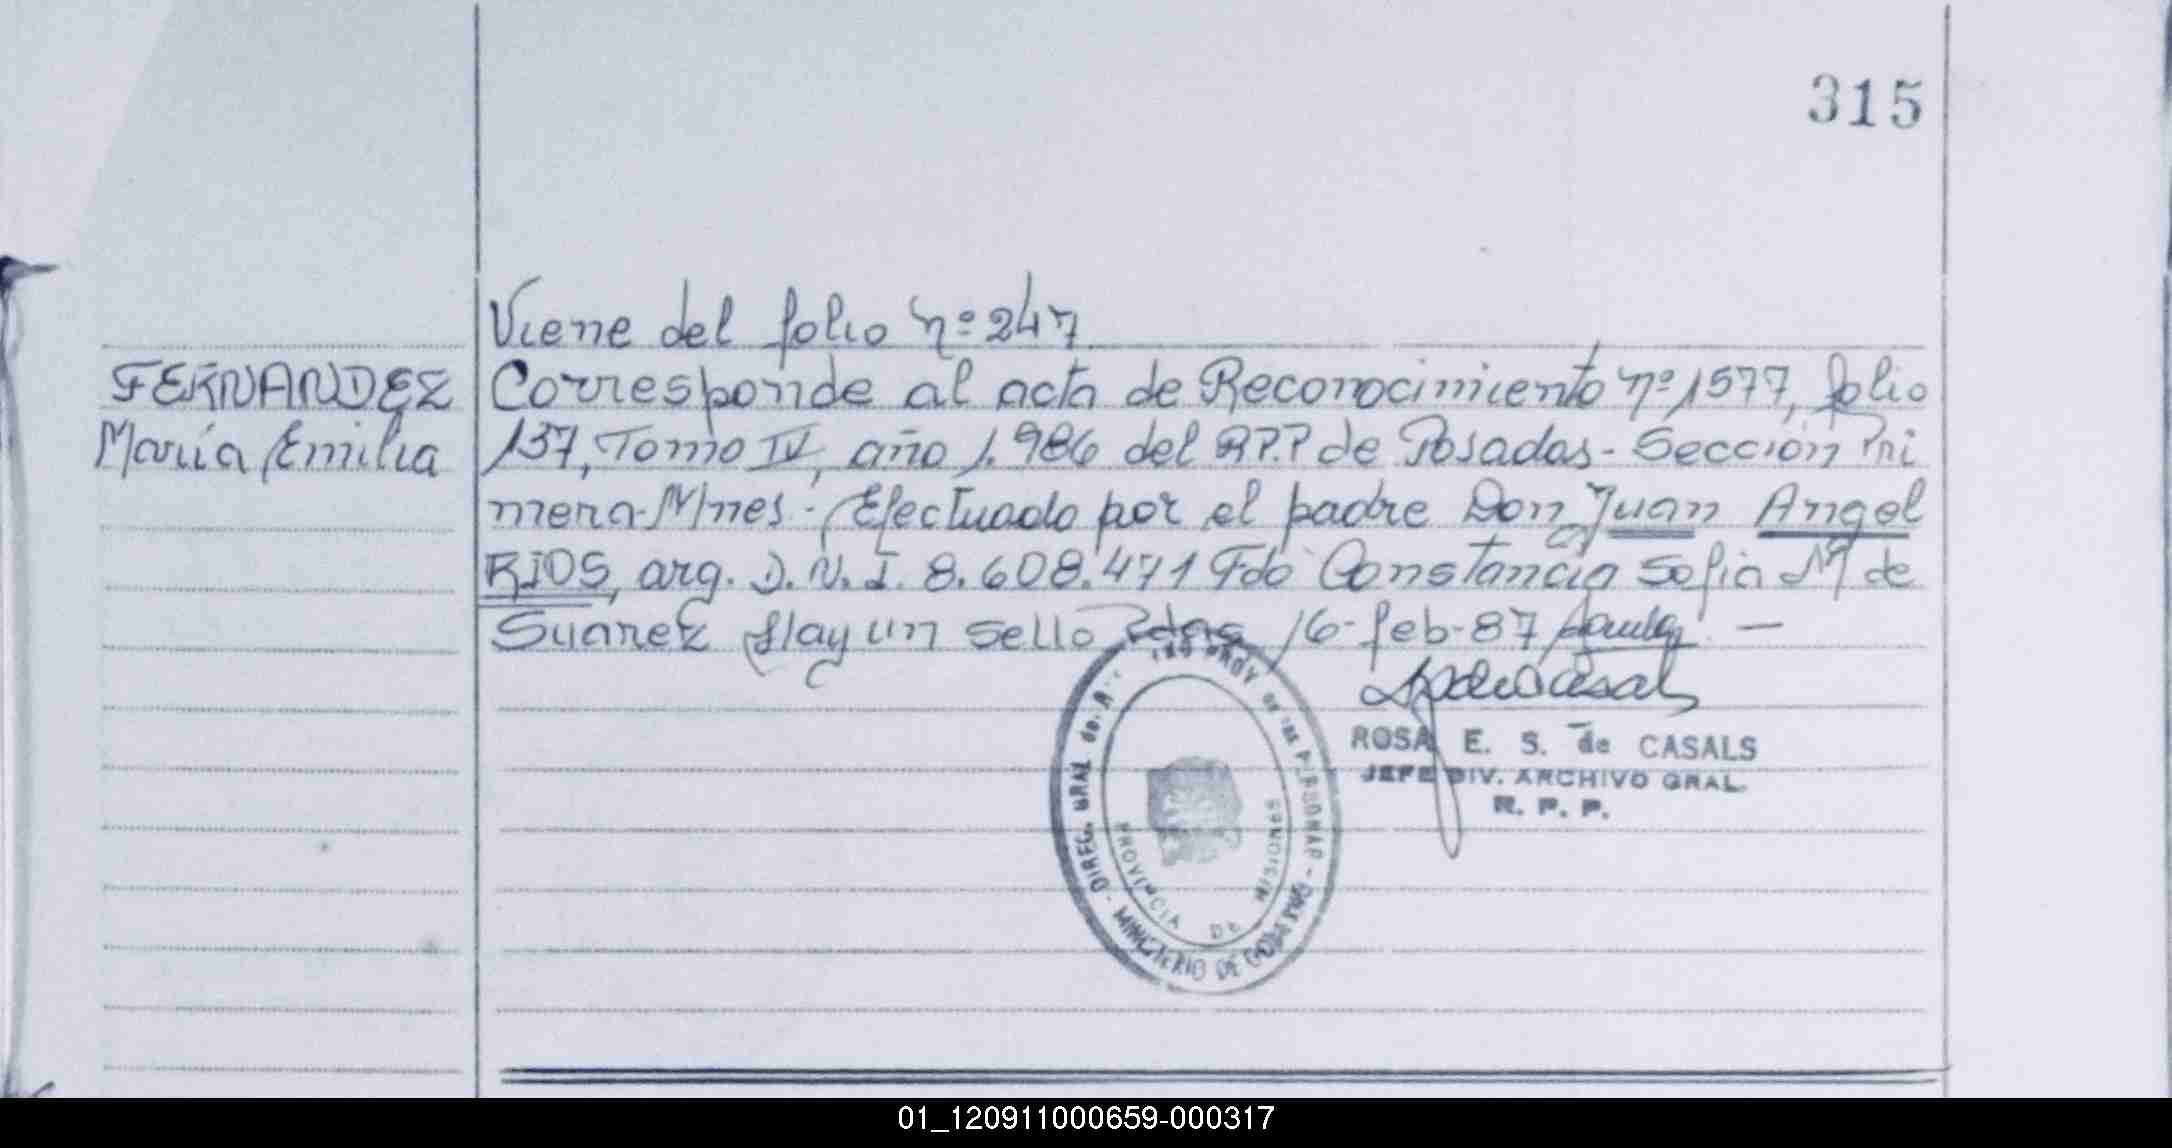 315
Viene del folio nº 247
FERNANDEZ
María Emilia
Corresponde al acta de Reconocimiento nº 1577, folio
137, Tomo IV, año 1.986 del R.P.P de Posadas - Sección Pri
mera - Mnes. - Efectuado por el padre Don Juan Angel
RIOS, arg. D.N.I. 8.608.471 Fdo Constancia Sofia M de
Suarez Hay un sello Pdas 16-feb-87
ROSA E. S. de CASALS
JEFE DIV. ARCHIVO GRAL.
R. P. P.
DIREC. GRAL de PROV de las PERSONAS - MINISTERIO DE GOBIERNO
PROVINCIA DE MISIONES
01_120911000659-000317